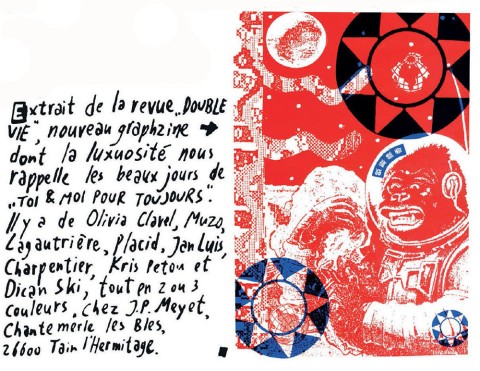 Extrait de la revue „DOUBLE
VIE", nouveau graphzine →
dont la luxuosité nous
rappelle les beaux jours de
„TOI & MOI POUR TOUJOURS".
Il y a de Olivia Clavel, Muzo,
Lagautrière, Placid, Jan Luis,
Charpentier, Kris Peton et
Dican Ski, tout en 2 ou 3
couleurs. Chez J.P. Meyet,
Chantemerle les Bles,
26600 Tain l'Hermitage.